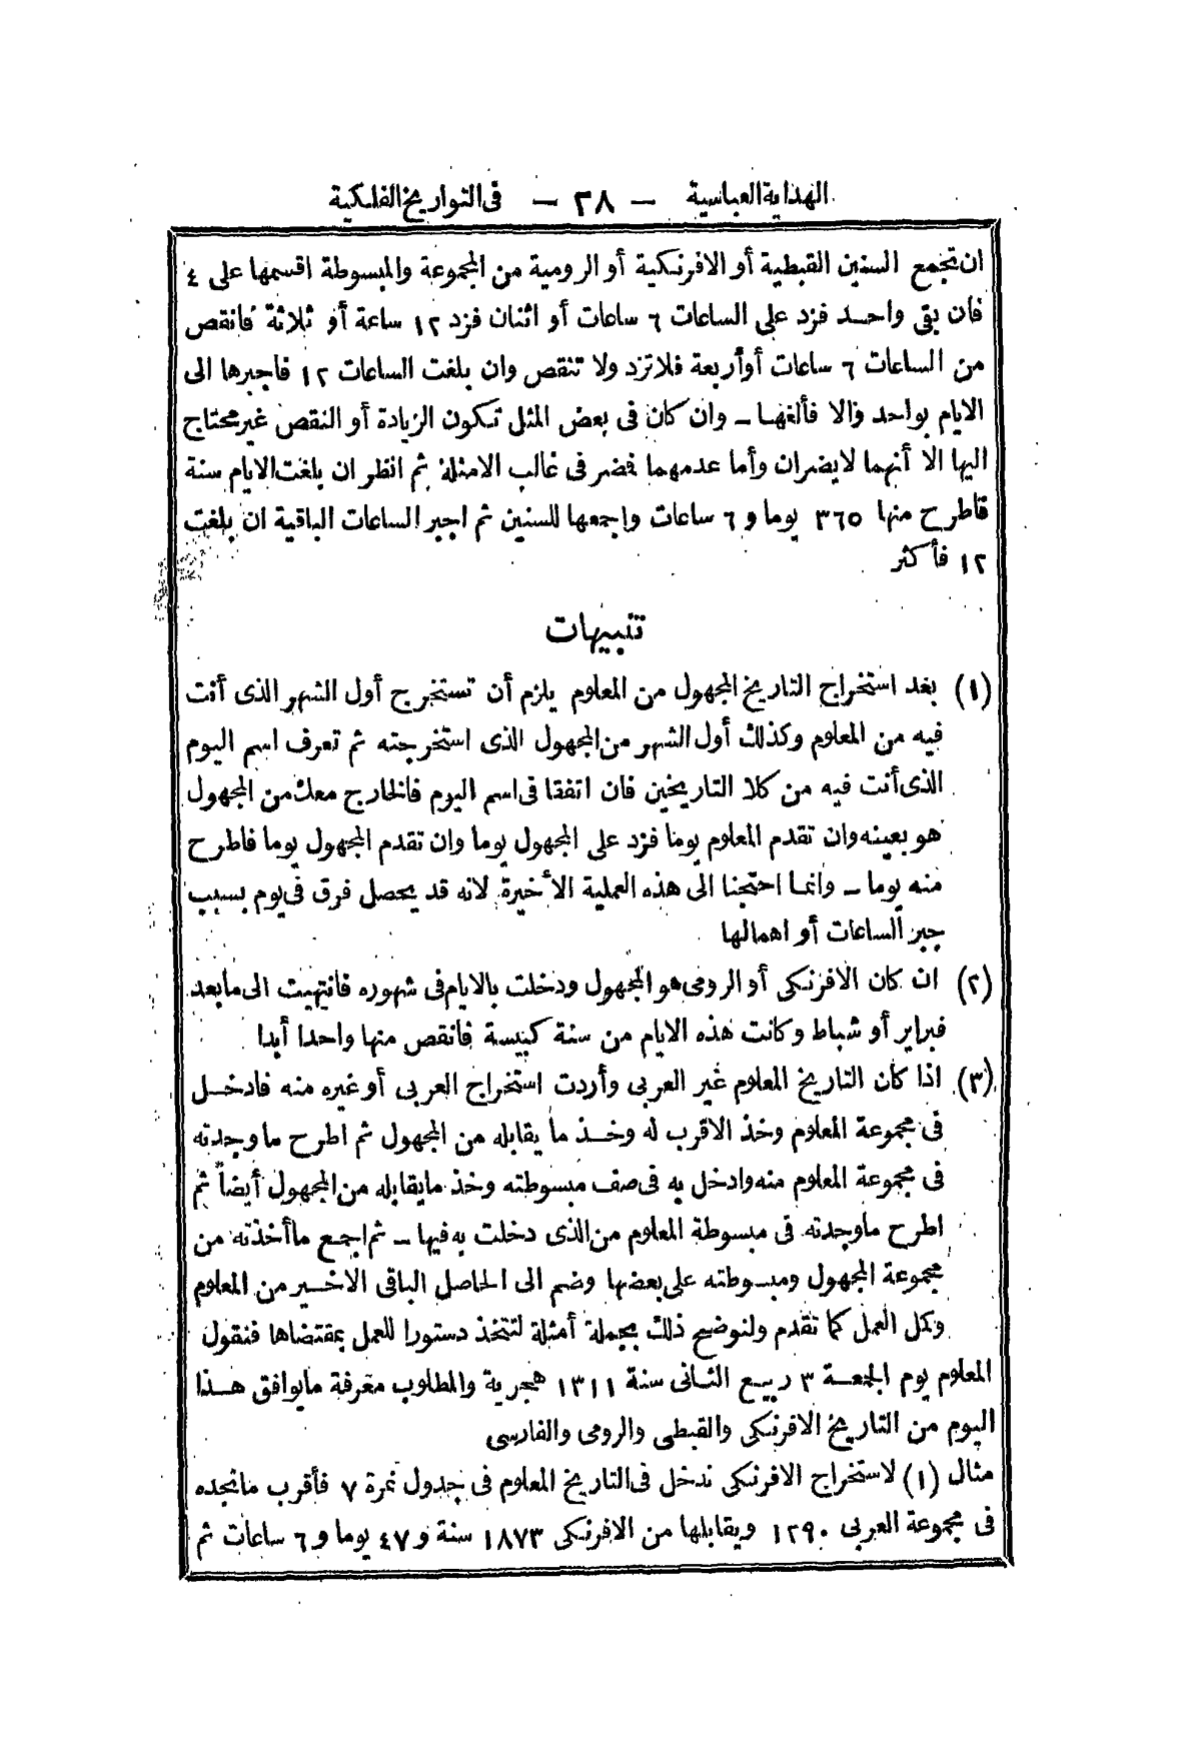 الهداية العباسية — ٢٨ — فى التواريخ الفلكية
ان تجمع السنين القبطية أو الافرنكية أو الرومية من المجموعة والمبسوطة اقسمها على ٤
فان بقى واحد فزد على الساعات ٦ ساعات أو اثنان فزد ١٢ ساعة أو ثلاثة فانقص
من الساعات ٦ ساعات أو أربعة فلا تزد ولا تنقص وان بلغت الساعات ١٢ فاجبرها الى
الايام بواحد والا فألغها ــ وان كان فى بعض المثل تكون الزيادة أو النقص غير محتاج
اليها الا أنهما لا يضران وأما عدمهما فضر فى غالب الامثلة ثم انظر ان بلغت الايام سنة
فاطرح منها ٣٦٥ يوما و ٦ ساعات واجمعها للسنين ثم اجبر الساعات الباقية ان بلغت
١٢ فأكثر
تنبيهات
(١) بعد استخراج التاريخ المجهول من المعلوم يلزم أن تستخرج أول الشهر الذى أنت
فيه من المعلوم وكذلك أول الشهر من المجهول الذى استخرجته ثم تعرف اسم اليوم
الذى أنت فيه من كلا التاريخين فان اتفقا فى اسم اليوم فالخارج معك من المجهول
هو بعينه وان تقدم المعلوم يوما فزد على المجهول يوما وان تقدم المجهول يوما فاطرح
منه يوما ــ وانما احتجنا الى هذه العملية الأخيرة لانه قد يحصل فرق فى يوم بسبب
جبر الساعات أو اهمالها
(٢) ان كان الافرنكى أو الرومى هو المجهول ودخلت بالايام فى شهوره فانتهيت الى ما بعد
فبراير أو شباط وكانت هذه الايام من سنة كبيسة فانقص منها واحدا أبدا
(٣) اذا كان التاريخ المعلوم غير العربى وأردت استخراج العربى أو غيره منه فادخل
فى مجموعة المعلوم وخذ الاقرب له وخذ ما يقابله من المجهول ثم اطرح ما وجدته
فى مجموعة المعلوم منه وادخل به فى صف مبسوطته وخذ ما يقابله من المجهول أيضاً ثم
اطرح ما وجدته فى مبسوطة المعلوم من الذى دخلت به فيها ــ ثم اجمع ما أخذته من
مجموعة المجهول ومبسوطته على بعضها وضم الى الحاصل الباقى الاخير من المعلوم
وكمل العمل كما تقدم ولنوضح ذلك بجملة أمثلة لتتخذ دستورا للعمل بمقتضاها فنقول
المعلوم يوم الجمعة ٣ ربيع الثانى سنة ١٣١١ هجرية والمطلوب معرفة ما يوافق هذا
اليوم من التاريخ الافرنكى والقبطى والرومى والفارسى
مثال (١) لاستخراج الافرنكى ندخل فى التاريخ المعلوم فى جدول نمرة ٧ فأقرب ما نجده
فى مجموعة العربى ١٢٩٠ ويقابلها من الافرنكى ١٨٧٣ سنة و ٤٧ يوما و ٦ ساعات ثم